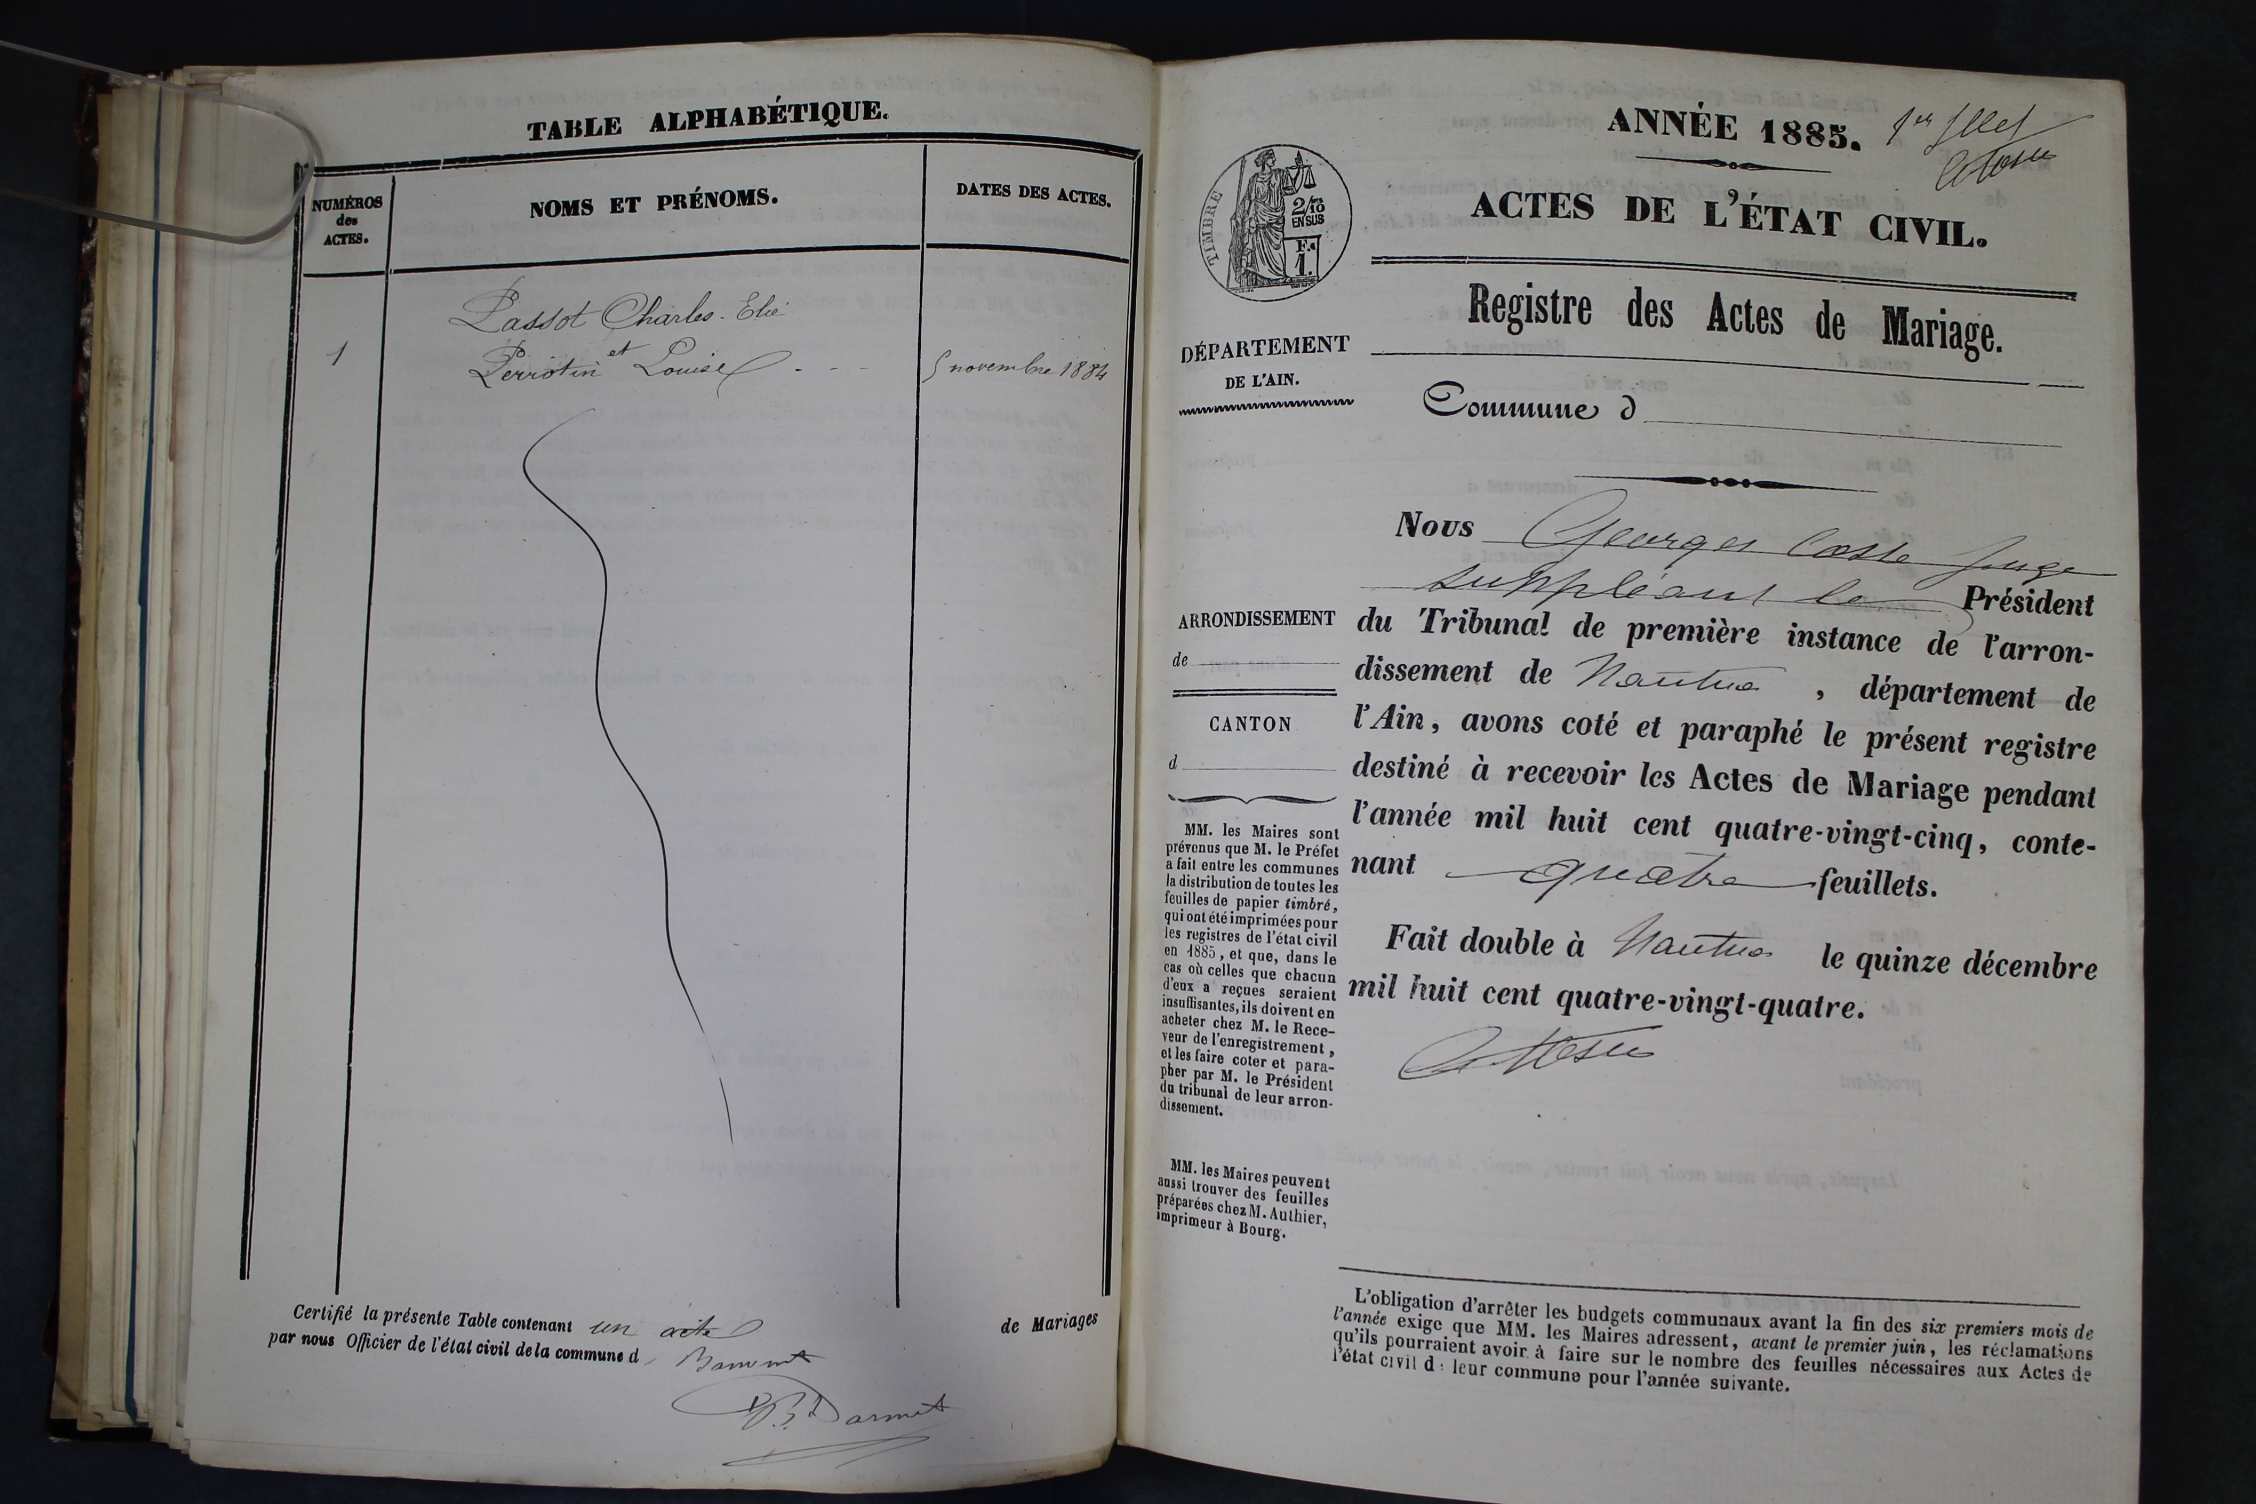 TABLE ALPHABÉTIQUE.
NUMÉROS
des
ACTES.
NOMS ET PRÉNOMS.
DATES DES ACTES.
Passot Charles-Elie
et
1
Perrotin Louise
5 novembre 1884
Certifié la présente Table contenant un acte de Mariages
par nous Officier de l'état civil de la commune d
Darmet
ANNÉE 1885.
1er
ACTES DE L'ÉTAT CIVIL.
TIMBRE
2/10
EN SUS
F.
1.
Registre des Actes de Mariage.
DÉPARTEMENT
DE L'AIN.
Commune d
Nous Georges Coste Juge
suppléant le Président
du Tribunal de première instance de l'arron-
dissement de Nantua, département de
l'Ain, avons coté et paraphé le présent registre
destiné à recevoir les Actes de Mariage pendant
l'année mil huit cent quatre-vingt-cinq, conte-
nant quatre feuillets.
Fait double à Nantua le quinze décembre
mil huit cent quatre-vingt-quatre.
ARRONDISSEMENT
de
CANTON
d
MM. les Maires sont
prévenus que M. le Préfet
a fait entre les communes
la distribution de toutes les
feuilles de papier timbré,
qui ont été imprimées pour
les registres de l'état civil
en 1885, et que, dans le
cas où celles que chacun
d'eux a reçues seraient
insuffisantes, ils doivent en
acheter chez M. le Rece-
veur de l'enregistrement,
et les faire coter et para-
pher par M. le Président
du tribunal de leur arron-
dissement.
MM. les Maires peuvent
aussi trouver des feuilles
préparées chez M. Authier,
imprimeur à Bourg.
L'obligation d'arrêter les budgets communaux avant la fin des six premiers mois de
l'année exige que MM. les Maires adressent, avant le premier juin, les réclamations
qu'ils pourraient avoir à faire sur le nombre des feuilles nécessaires aux Actes de
l'état civil de leur commune pour l'année suivante.